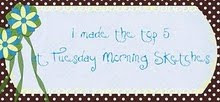 i made the top 5
at Tuesday Morning Sketches